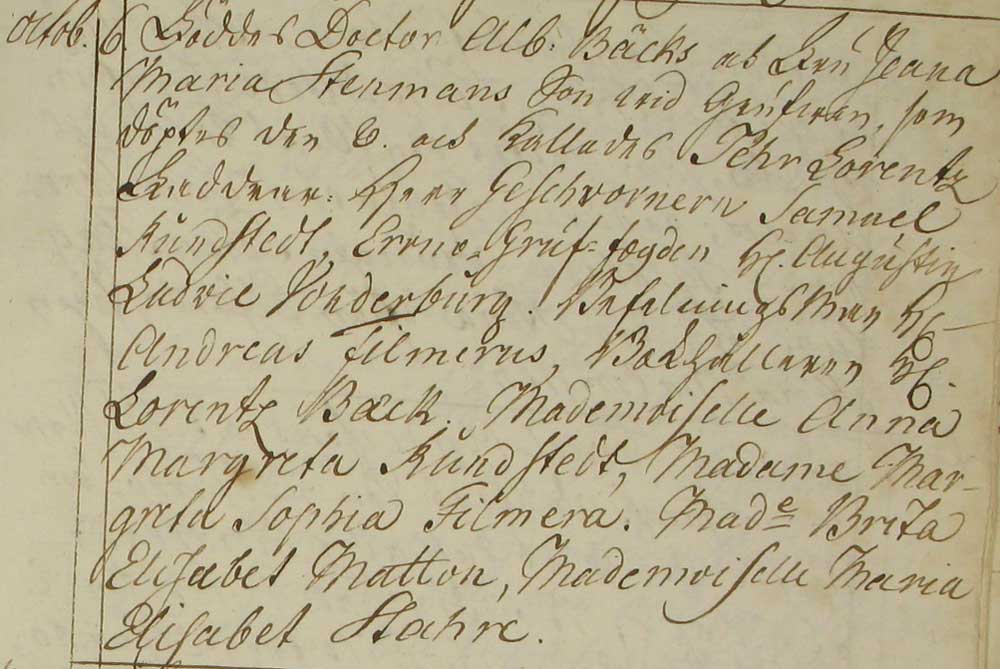 Octob. 6. Föddes Doctor Alb. Bäcks och Fru Jeana
Maria Stenmans Son wid Grufwan, som
döptes den 8. och kallades Pehr Lorentz
Faddrar: Herr Geschwornern Samuel
Rundstedt, Gruffogden H. Augustin
Ludvic Vonderburg. Befalnings Man H.
Andreas Filmerus, Bokhållaren H.
Lorentz Bæck. Mademoiselle Anna
Margreta Rundstedt, Madame Mar-
greta Sophia Filmera. Made Brita
Elisabet Matton, Mademoiselle Maria
Elisabet Stahre.